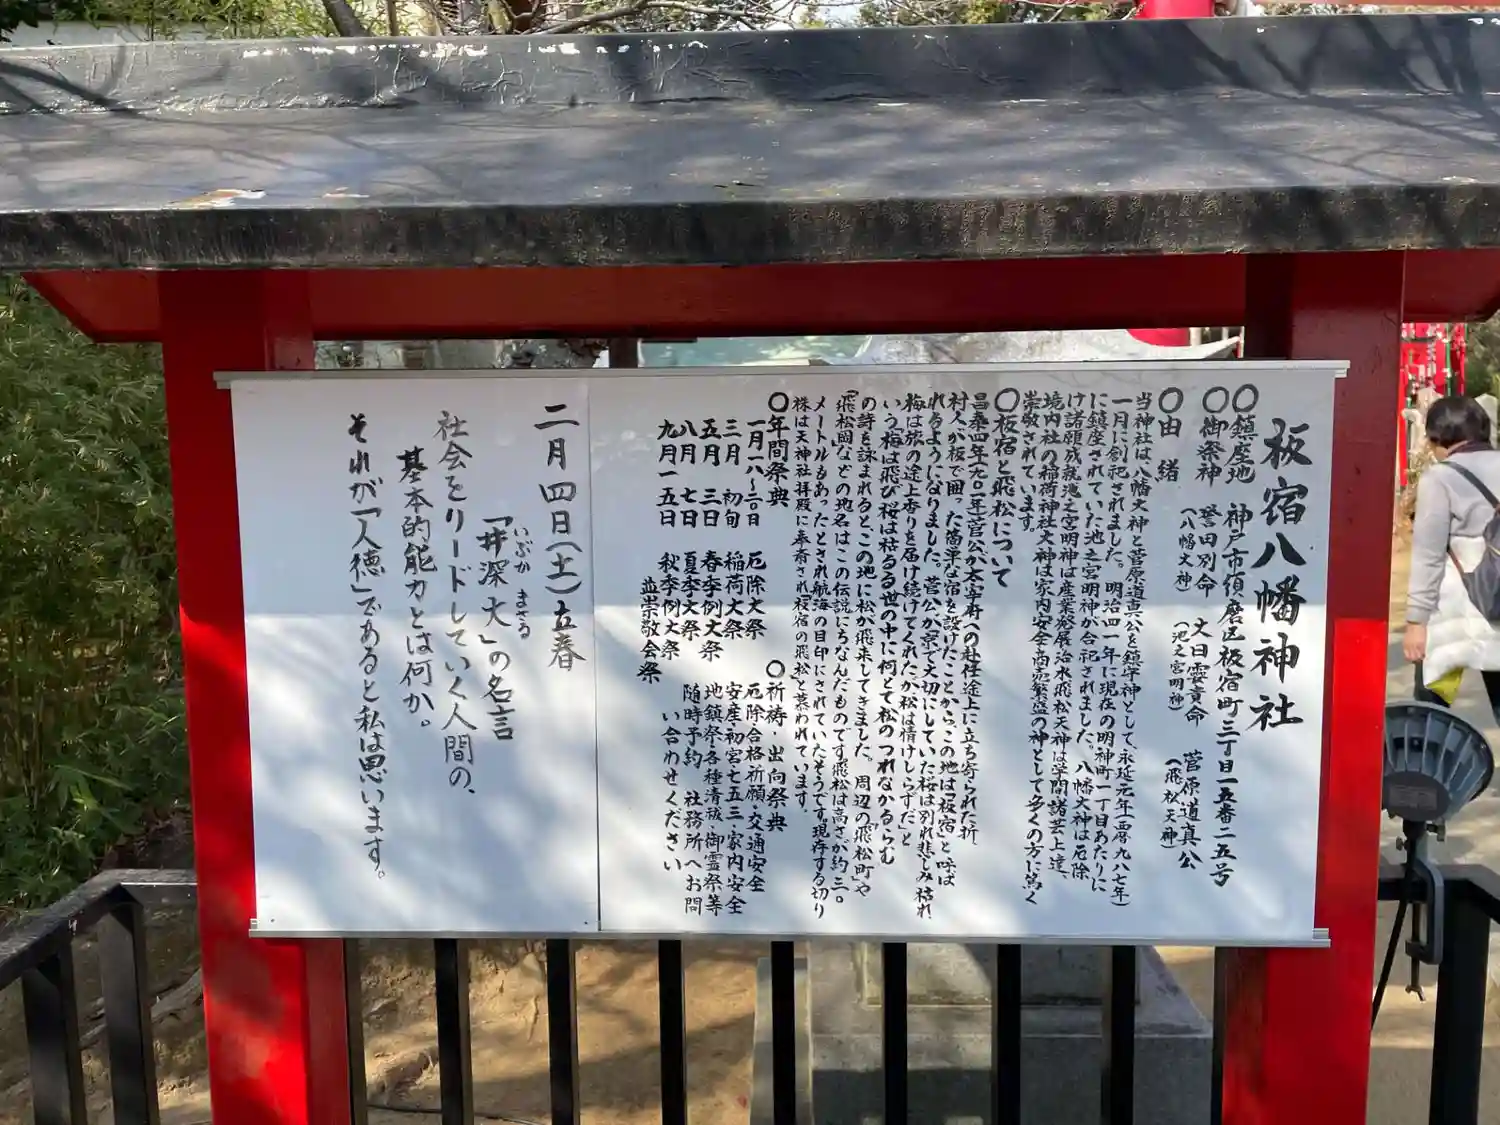 板宿八幡神社
〇鎮座地 神戸市須磨区板宿町三丁目一五番二五号
〇御祭神 誉田別命 大日霊貴命 菅原道真公
(八幡大神) (池之宮明神) (飛松天神)
〇由 緒
当神社は八幡大神と菅原道真公を鎮守神として、永延元年(西暦九八七年)
一月に創祀されました。明治四一年に現在の明神町一丁目あたりに
に鎮座されていた池之宮明神が合祀されました。八幡大神は厄除
け諸願成就池之宮明神は産業発展治水飛松天神は学問諸芸上達、
境内社の稲荷神社大神は家内安全商売繁盛の神として多くの方に篤く
崇敬されています。
〇板宿と飛松について
昌泰四年(九〇一年)菅公が太宰府への赴任途上に立ち寄られた折
村人が板で囲った簡単な宿を設けたことから、この地は「板宿」と呼ば
れるようになりました。菅公が京で大切にしていた桜は別れ悲しみ枯れ
梅は旅の途上香りを届け続けてくれたが松は情けしらずだ」と
いう「梅は飛び桜は枯るる世の中に何とて松のつれなかるらむ
の詩を詠まれるとこの地に松が飛来してきました。周辺の「飛松町」や
「飛松岡」などの地名はこの伝説にちなんだものです。飛松は高さが約三〇
メートルもあったとされ航海の目印にされていたそうです。現存する切り
株は天神社拝殿に奉斎され「板宿の飛松」と慕われています。
〇年間祭典
一月一八〜二〇日 厄除大祭
三月 初旬 稲荷大祭
五月 三日 春季例大祭
八月 七日 夏季大祭
九月一五日 秋季例大祭
並崇敬会祭
〇祈祷・出向祭典
厄除・合格祈願・交通安全
安産・初宮七五三 家内安全
地鎮祭・各種清祓・御霊祭等
随時予約、社務所へお問
い合わせください
二月四日(土)立春
「井深大」の名言
いぶか まさる
社会をリードしていく人間の、
基本的能力とは何か。
それが「人徳」であると私は思います。